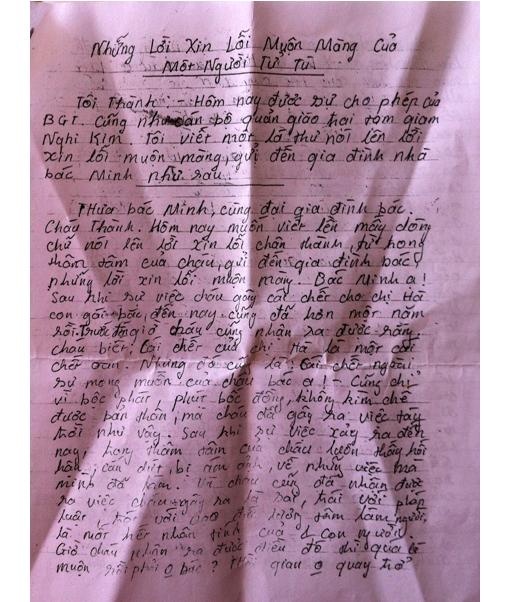 Những Lời Xin Lỗi Muộn Màng Của
Một Người Tử Tù
Tôi Thành - Hôm nay được sự cho phép của
BGT. Cũng như cán bộ quản giáo tại tạm giam
Nghi Kim. Tôi viết một lá thư nói lên lời
xin lỗi muộn màng, gửi đến gia đình nhà
bác Minh như sau.
Thưa bác Minh, cùng đại gia đình bác.
Cháu Thành. Hôm nay muốn viết lên mấy dòng
chữ nói lên lời xin lỗi chân thành, từ trong
thâm tâm của cháu, gửi đến gia đình bác,
những lời xin lỗi muộn màng. Bác Minh ạ!
Sau khi sự việc cháu gây cái chết cho chị Hà
con gái bác, đến nay cũng đã hơn một năm
rồi. giờ cháu cũng nhận ra được rằng.
cháu biết, Cái chết của chị Hà là một cái
chết oan. Nhưng đó cũng là Cái chết ngoài
sự mong muốn của cháu bác ạ! - Cũng chỉ
vì bộc phát, phút bốc đồng, không kìm chế
được bản thân, mà cháu đã gây ra việc tày
trời như vậy. Sau khi sự việc xảy ra đến
nay, trong thâm tâm của cháu luôn thấy hối
hận, cắn dứt, bị ám ảnh, về những việc mà
mình đã làm. Và cháu cũng đã nhận được
ra việc cháu gây ra là sai trái với pháp
luật, trái với đạo đức lương tâm làm người,
là mất hết nhân tính của 1 con người.
Giờ cháu nhận ra được điều đó thì quá
muộn rồi phải o bác? Thời gian o quay trở